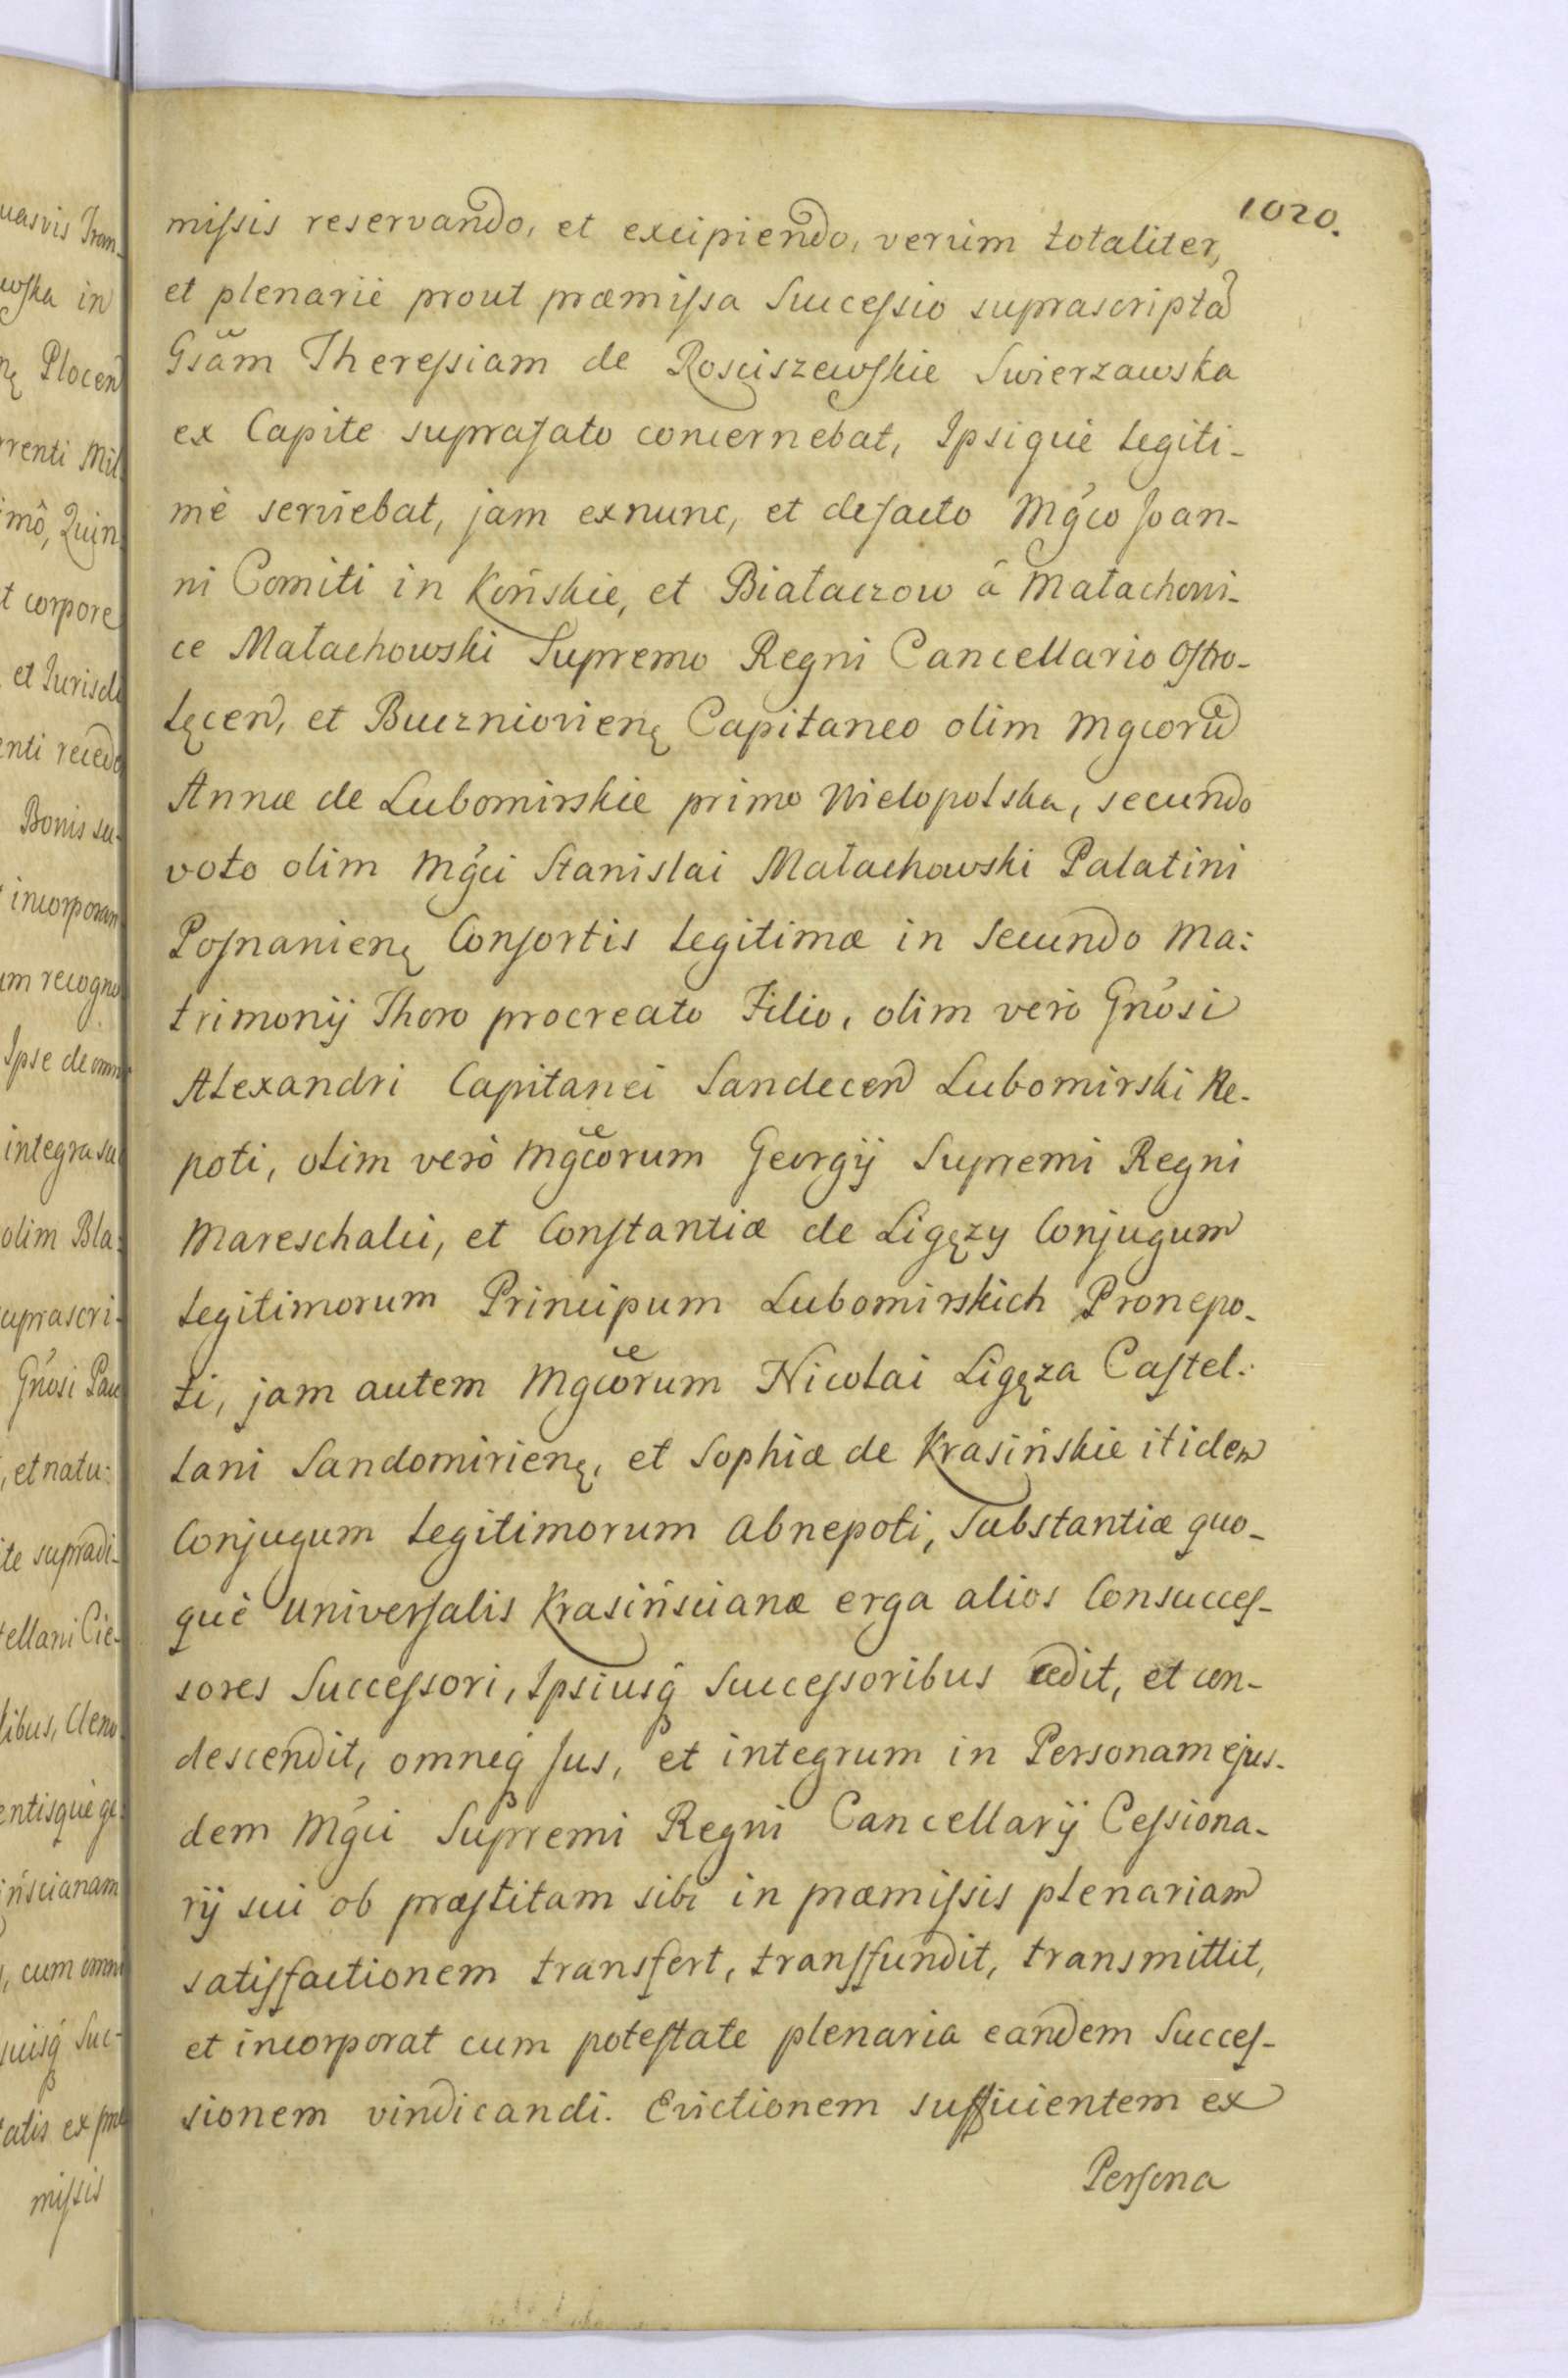 1020.
missis reservando, et excipiendo, verùm totaliter,
et plenariè prout præmissa Successio suprascriptã
Gsãm Theressiam de Rosciszewskie Swierzawska
ex Capite suprafato concernebat, Ipsique legiti-
mè serviebat, jam exnunc, et defacto Mgco Joan-
ni Comiti in Końskie, et Białaczow â Małachowi-
ce Małachowski Supremo Regni Cancellario Ostro-
łęcen, et Buczniovienę Capitaneo olim Mgcorũ
Annæ de Lubomirskie primo Wielopolska, secundo
voto olim Mgci Stanislai Małachowski Palatini
Posnanienę Consortis legitimæ in secundo Ma:
trimonij Thoro procreato Filio, olim verò Gnosi
Alexandri Capitanei Sandecen Lubomirski Ne-
poti, olim verò Mgcorum Georgij Supremi Regni
Mareschalci, et Constantiæ de Ligęzy Conjugum
legitimorum Principum Lubomirskich Pronepo-
ti, jam autem Mgcorum Nicolai Ligęza Castel:
lani Sandomirienę, et Sophiæ de Krasińskie itidem
Conjugum legitimorum Abnepoti, Substantiæ quo-
què universalis Krasińscianæ erga alios Consucces-
sores Successori, Ipsiusq Successoribus cedit, et con-
descendit, omneq Jus, et integrum in Personam ejus-
dem Mgci Supremi Regni Cancellarij Cessiona-
rij sui ob præstitam sibi in præmissis plenariam
satisfactionem transfert, transfundit, transmittit,
et incorporat cum potestate plenaria eandem Succes-
sionem vindicandi. Evictionem sufficientem ex
Persona